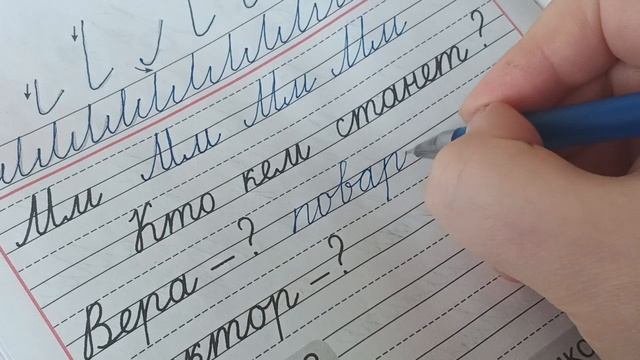 Мм Мм Мм Мм
Кто кем станет?
Вера – ? повар
ктор – ?